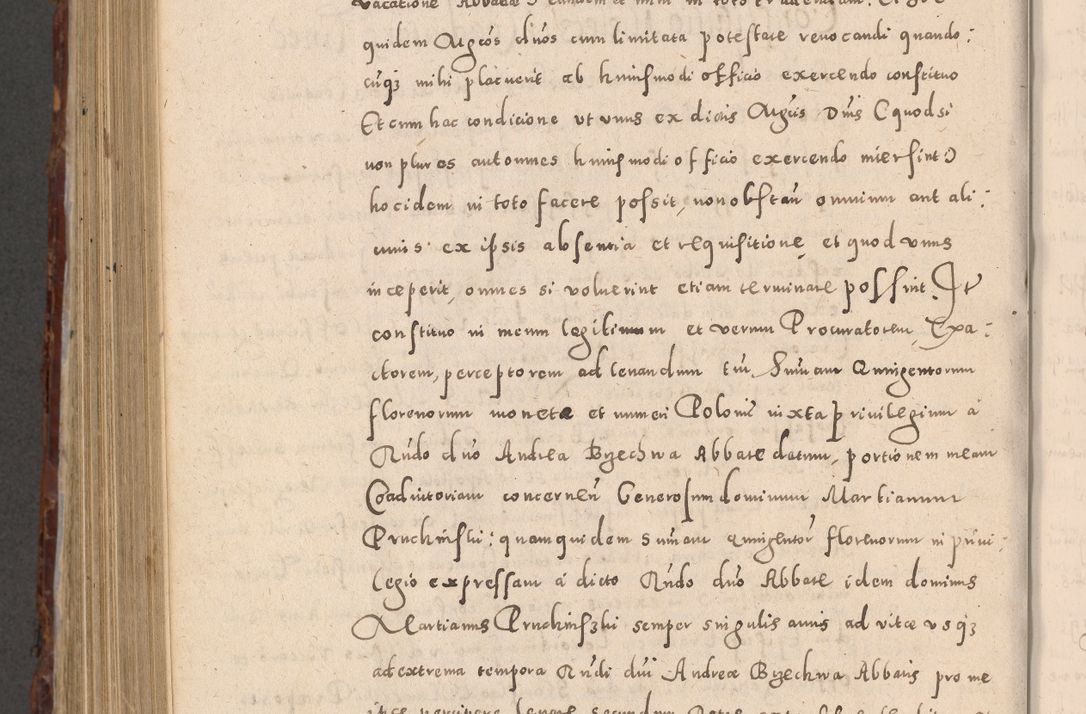 quidem Atgeos dnos cum limitata potestate revocandi quando:
cuqz mihi placuerit ab huiusmodi officio exercendo constituo
Et cum hac condicione ut unus ex dictis Atgeis Dnis (quod si
non plures aut omnes huiusmodi officio exercendo interfint)
hoc idem in toto facere possit, non obstan omnium aut ali:
cuius ex ipsis absentia et requisitione, et quod unus
inceperit, omnes si voluerint etiam terminare possint. Ite
constituo in meum legitimum et verum Procuratorem, Exa:
ctorem, perceptorem ad levandum Summam Quingentorum
florenorum moneta et numeri Poloni iuxta privilegium a
Rndo dno Andrea Brzechwa Abbate datum, portionem meam
Coadiutoriam concernen Generosum dominum Martianum
Pruchinski: quamquidem Summam quingentor florenorum in privi:
legio expressam a dicto Rndo dno Abbate idem dominus
Martianus Pruchinszki semper singulis annis ad vitae usqz
ad extrema tempora Rndi dni Andreae Brzechwa Abbatis pro me